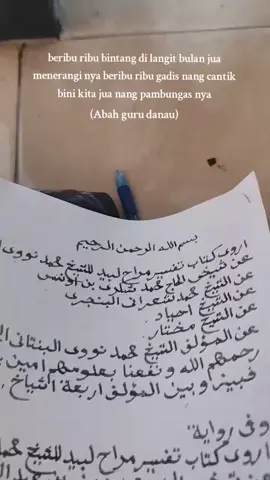 beribu ribu bintang di langit bulan jua
menerangi nya beribu ribu gadis nang cantik
bini kita jua nang pambungas nya
(Abah guru danau)
بسم الله الرحمن الرحيم
اروى كتاب تفسير مراح لبيد للشيخ محمد نووى
عن شيخى الحاج محمد شكرى بن
عن الشيخ محمد شعرانى البنجرى
عن الشيخ احياد
عن الشيخ مختار
عن المؤلف الشيخ محمد نووى البنتانى
رحمهم الله ونفعنا بعلومهم امين
فبينى وبين المؤلف اربعة اشياخ
وفى رواية
اروى كتاب تفسير مراح لبيد للشيخ